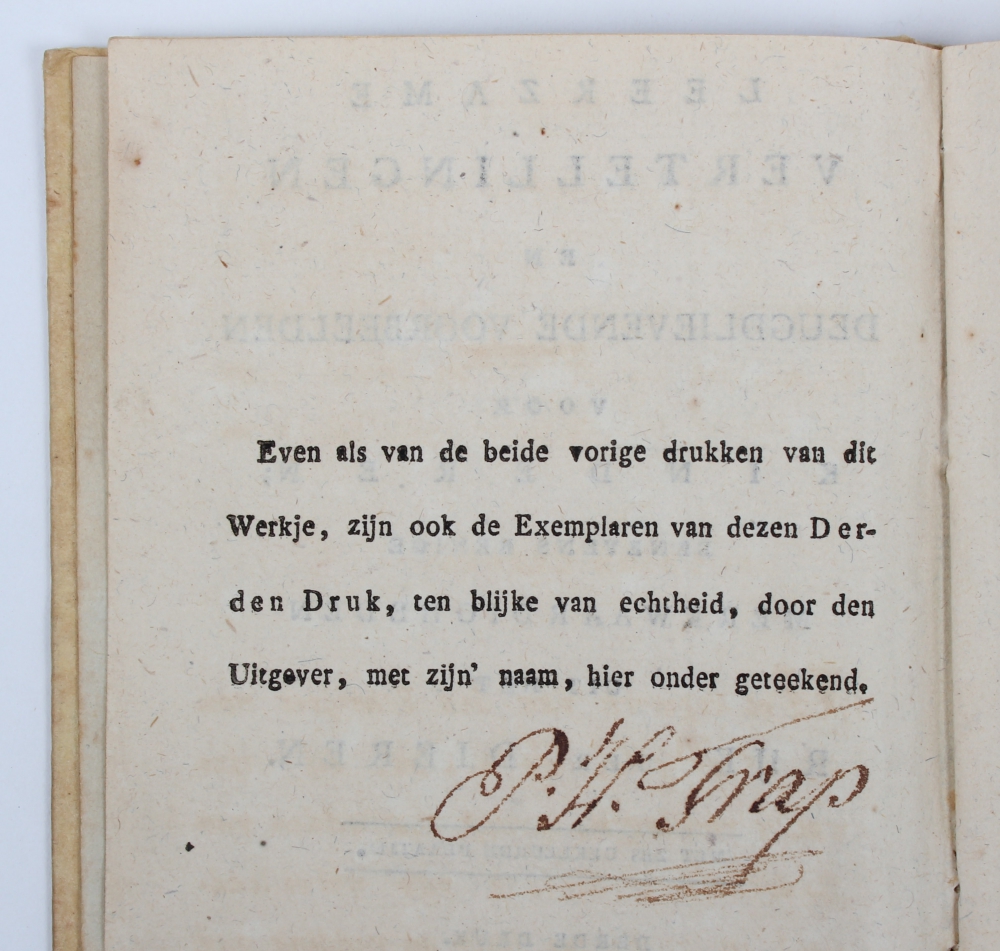 Even als van de beide vorige drukken van dit
Werkje, zijn ook de Exemplaren van dezen Der-
den Druk, ten blijke van echtheid, door den
Uitgever, met zijn' naam, hier onder geteekend.
P. W. Trap